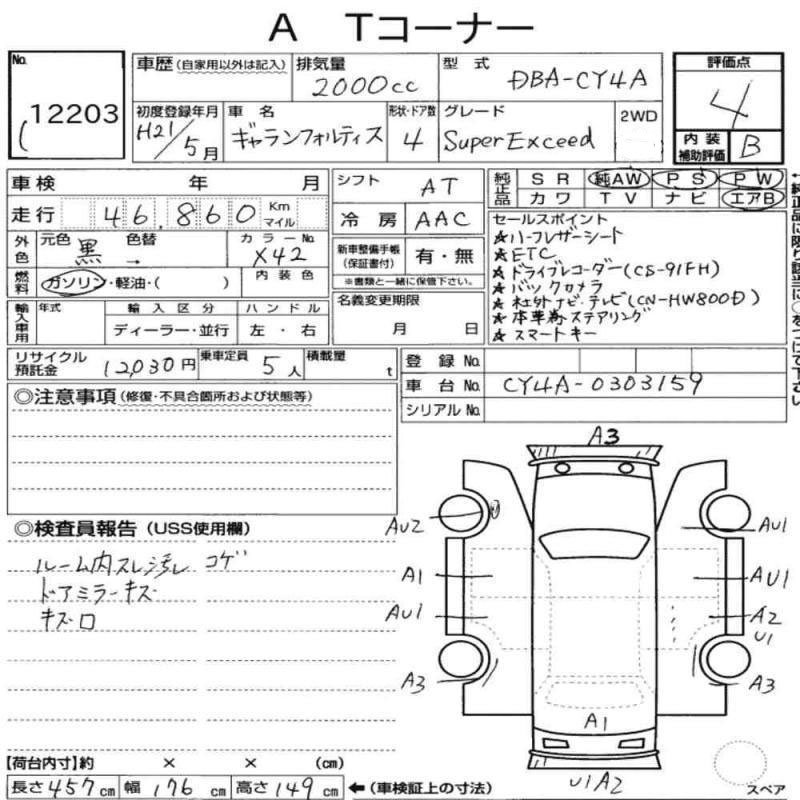 A Tコーナー
No. 12203
車歴 (自家用以外は記入) 排気量 2000cc 型式 DBA-CY4A
評価点 4
初度登録年月 H21/5月 車名 ギャランフォルティス 形状・ドア数 4 グレード SuperExceed 2WD
内装補助評価 B
車検 年 月
シフト AT
純正品 SR 純AW PS PW
カワ TV ナビ エアB
走行 46,860 Km マイル
冷房 AAC
セールスポイント
★ハーフレザーシート
★ETC
★ドライブレコーダー(CS-91FH)
★バックカメラ
★社外ナビ・テレビ(CN-HW800D)
★本革巻ステアリング
★スマートキー
外色 元色 黒 色替 → カラーNo. X42
新車整備手帳(保証書付) 有・無
※書類と一緒に保管下さい。
燃料 ガソリン・軽油・( ) 内装色
名義変更期限
月 日
輸入車用 年式 輸入区分 ハンドル
ディーラー・並行 左・右
リサイクル預託金 12,030円 乗車定員 5人 積載量 t
登録No.
車台No. CY4A-0303159
シリアルNo.
◎注意事項(修復・不具合箇所および状態等)
◎検査員報告(USS使用欄)
ルーム内スレ汚レ コゲ
ドアミラーキズ
キズロ
A3
AU2 AU1
A1 AU1
AU1 A2
U1
A3 A3
A1
U1A2
スペア
【荷台内寸】約 × × (cm)
長さ457cm 幅176cm 高さ149cm ←(車検証上の寸法)